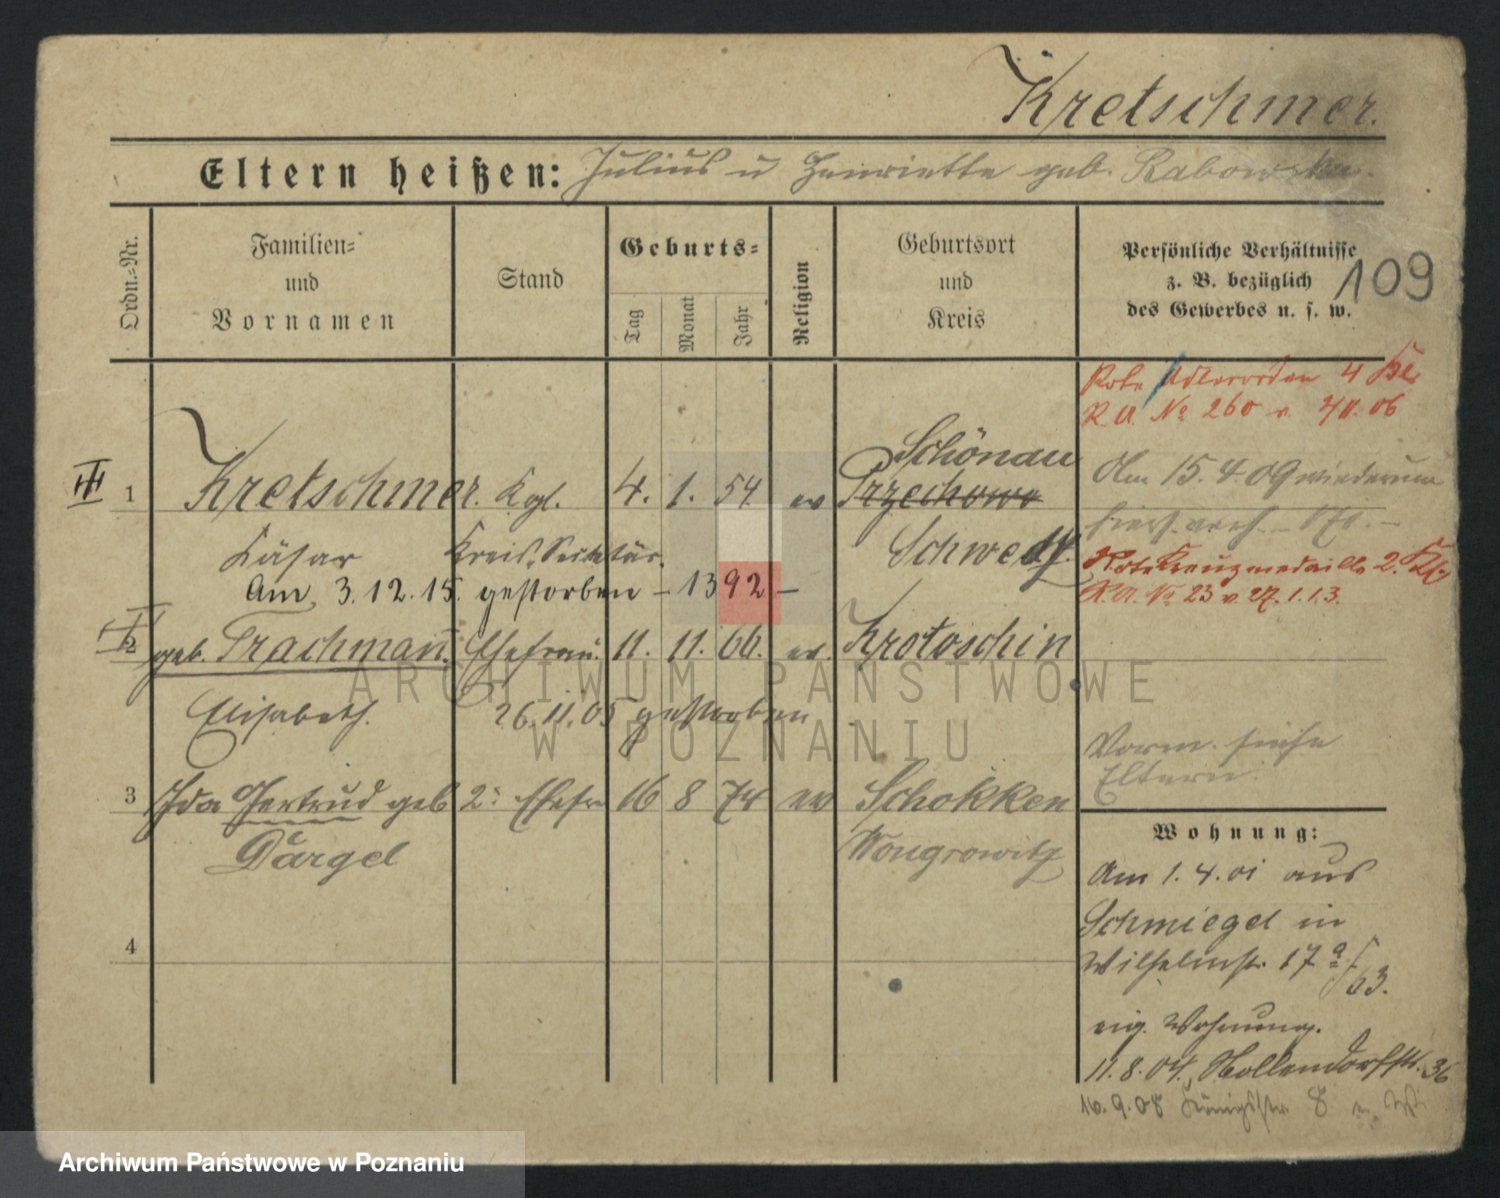 Kretschmer.
Eltern heißen: Julius u Henriette geb.
Ordn.-Nr.
Familien-
und
Vornamen
Stand
Geburts-
Tag
Monat
Jahr
Religion
Geburtsort
und
Kreis
Persönliche Verhältnisse
z. B. bezüglich
des Gewerbes u. s. w.
109
Rote Adlerorden 4 Kl.
R.A. No 260 v.
III
1 Kretschmer. Kgl. 4. 1. 54 ev Schönau
Przechowo
Cäsar Kreis-Sekretär. Schwetz.
Am 3.12.15. gestorben – 1392 –
Am 15.4.09 wiederum
Rote Kreuzmedaille 2. Kl.
R.A. No 23 v. 27.1.13.
2 geb. Trachmann. Ehefrau. 11. 11. 66. ev. Krotoschin
Elisabeth. 26.11.05 gestorben
Vorm. siehe
Eltern.
3 Ida Gertrud geb 2. Ehefr 16 8 74 ev Schokken
Dargel Wongrowitz
4
Wohnung:
Am 1.4.01 aus
Schmiegel in
Wilhelmstr. 17 a
63.
eig. Wohnung.
11.8.04. Nollendorfstr. 36
16.9.08 Königstr 8
ARCHIWUM PAŃSTWOWE
W POZNANIU
Archiwum Państwowe w Poznaniu